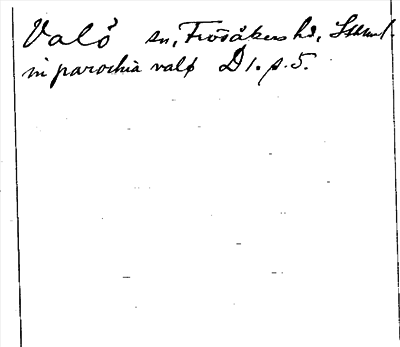 Valö sn, Frösåkers hd,
in parochia valø D 1. p. 5.